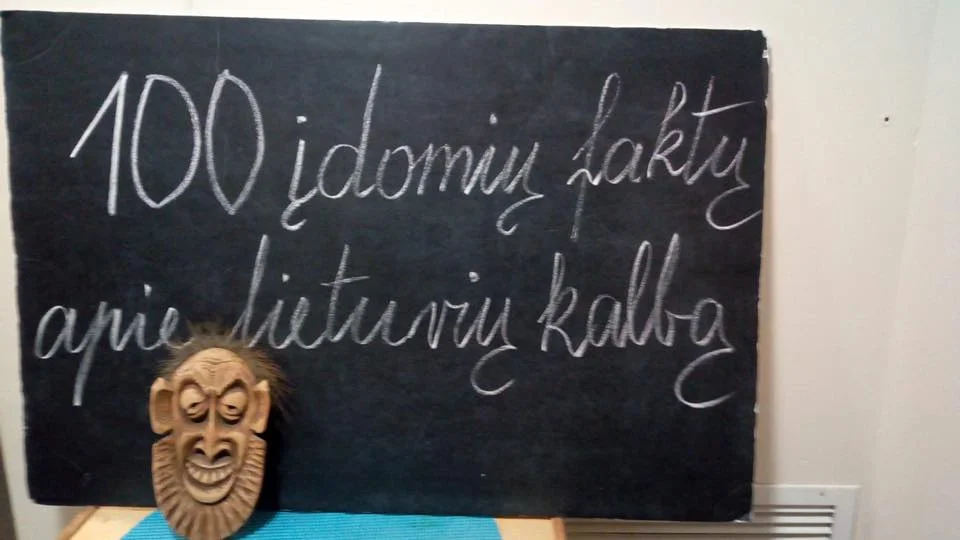 100 įdomių faktų
apie lietuvių kalbą